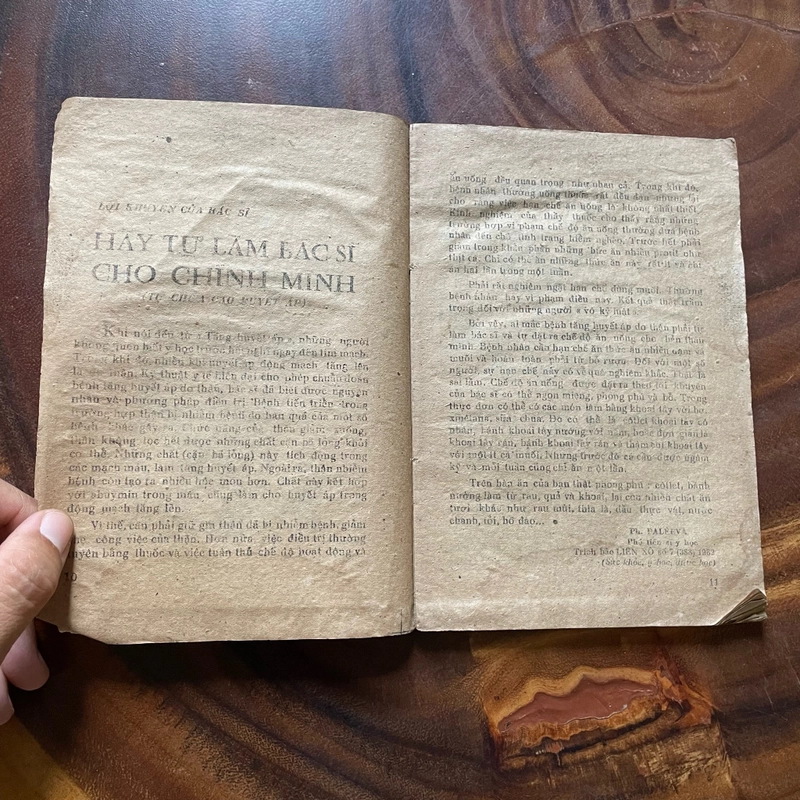 LỜI KHUYÊN CỦA BÁC SĨ
HÃY TỰ LÀM BÁC SĨ
CHO CHÍNH MÌNH
(TỰ CHỮA CAO HUYẾT ÁP)
Khi nói đến từ « Tăng huyết áp », những người
không quen biết y học trước hết nghĩ ngay đến tim mạch.
Trong khi đó, nhiều khi huyết áp động mạch tăng lên
là thận. Kỹ thuật y tế hiện đại cho phép chuẩn đoán
bệnh tăng huyết áp do thận, bác sĩ đã biết được nguyên
nhân và phương pháp điều trị. Bệnh tiến triển trong
trường hợp thận bị nhiễm bệnh do hậu quả của một số
bệnh khác gây ra. Chức năng của thận giảm xuống,
thận không lọc hết được những chất cặn bã lỏng khỏi
cơ thể. Những chất (cặn bã lỏng) này tích đọng trong
các mạch máu, làm tăng huyết áp. Ngoài ra, thận nhiễm
bệnh còn tạo ra nhiều hóc môn hơn. Chất này kết hợp
với abuymin trong máu cũng làm cho huyết áp trong
động mạch tăng lên.
Vì thế, cần phải giữ gìn thận đã bị nhiễm bệnh, giảm
nhẹ công việc của thận. Hơn nữa, việc điều trị thường
xuyên bằng thuốc và việc tuân thủ chế độ hoạt động và
10
ăn uống đều quan trọng như nhau cả. Trong khi đó,
bệnh nhân thường uống thuốc rất đều đặn nhưng lại
cho rằng việc hạn chế ăn uống là không phải thiết.
Kinh nghiệm của thầy thuốc cho thấy rằng những
trường hợp vi phạm chế độ ăn uống thường đưa bệnh
nhân đến chỗ tình trạng hiểm nghèo. Trước hết phải
giảm trong khẩu phần những bức ăn nhiều protit như
thịt cá. Chỉ có thể ăn những thức ăn này rất ít và chỉ
ăn hai lần trong một tuần.
Phải rất nghiêm ngặt hạn chế dùng muối. Thường
bệnh nhân hay vi phạm điều này. Kết quả thật trầm
trọng đối với những người « vô kỷ luật ».
Bởi vậy, ai mắc bệnh tăng huyết áp do thận phải tự
làm bác sĩ và tự đặt ra chế độ ăn uống cho bản thân
mình. Bệnh nhân cần hạn chế ăn thức ăn nhiều đạm và
muối và hoàn toàn phải từ bỏ rượu. Đối với một số
người, sự hạn chế này có vẻ quá nghiêm khắc. Thật là
sai lầm. Chế độ ăn uống được đặt ra theo lời khuyên
của bác sĩ có thể ngon miệng, phong phú và bổ. Trong
thực đơn có thể có các món làm bằng khoai tây với bơ,
xmêtana, sữa chua. Đó có thể là côtlet khoai tây có
nhân, bánh khoai tây nướng với nấm, hoặc đơn giản là
khoai tây cán, bánh khoai tây rán và thậm chí khoai tây
với một ít cá muối. Nhưng trước đó cá cần được ngâm
kỹ và mỗi tuần cũng chỉ ăn một lần.
Trên bàn ăn của bạn thật phong phú : côtlet, bánh
nướng làm từ rau, quả và khoai, lại còn nhiều chất ăn
tươi khác như rau mùi, thìa là, dầu thực vật, nước
chanh, tỏi, hồ đào...
Ph. PALEEVA
Phó tiến sĩ y học
Trích báo LIÊN XÔ số 7 (388) 1982
(Sức khỏe, y học, dược học)
11